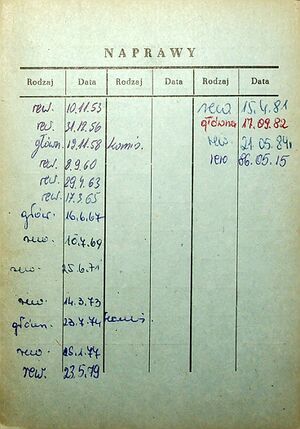 NAPRAWY
Rodzaj Data Rodzaj Data Rodzaj Data
rew. 10.11.53 rew 15.4.81
rew. 31.12.56 główna 17.09.82
główn. 19.11.58 rew 21.05.84
rew. 8.9.60 rew 86.05.15
rew. 29.4.63
rew. 17.3.65
głów. 16.6.67
rew. 10.7.69
rew. 25.6.71
rew. 14.3.73
główn. 23.7.74
rew 28.1.77
rew. 23.5.79